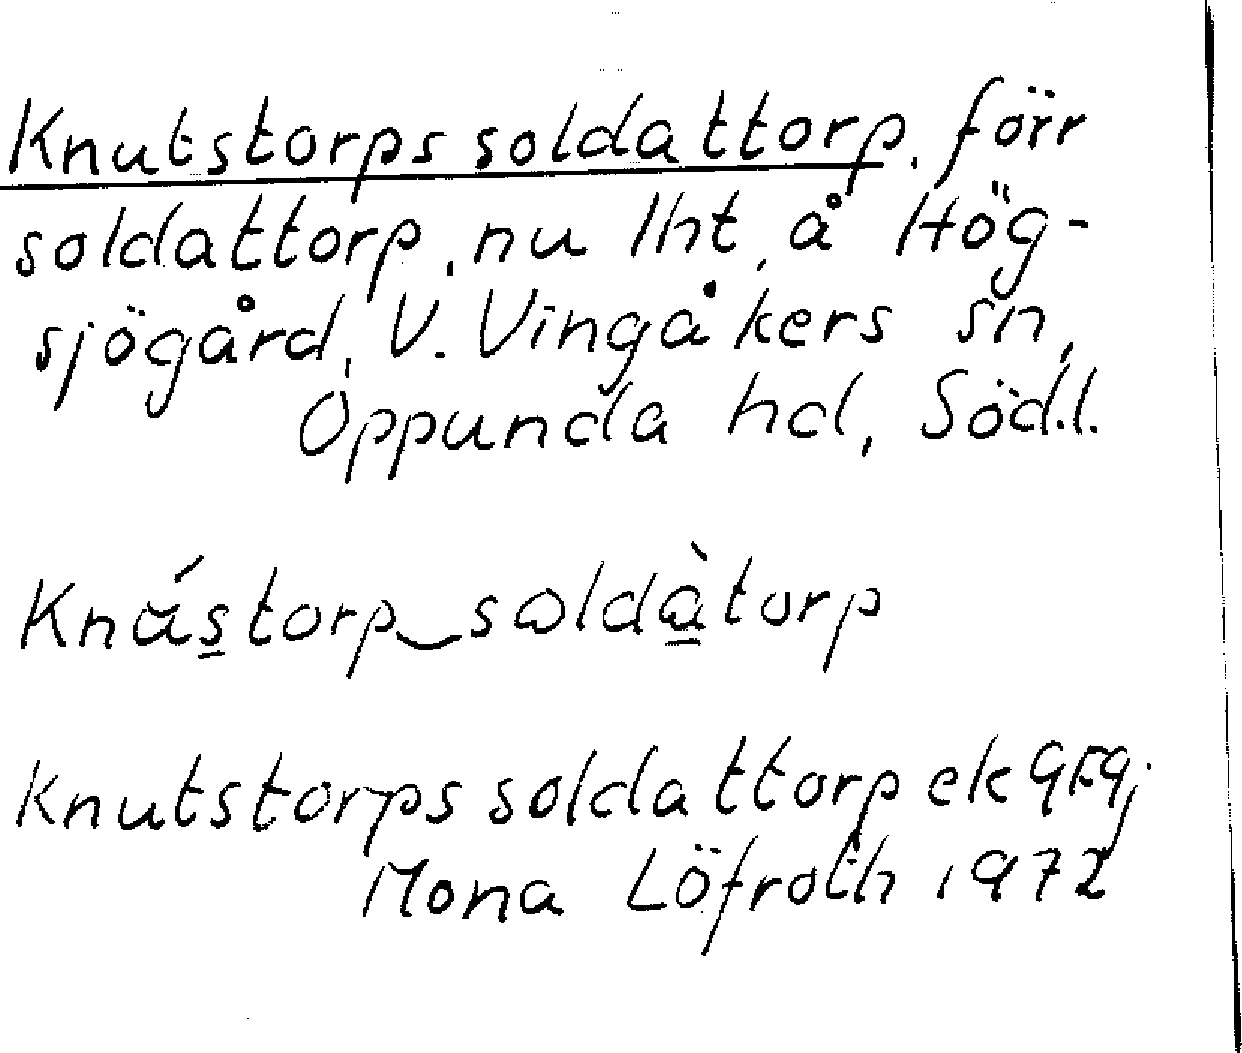 Knutstorps soldattorp, förr
soldattorp, nu lht, å Hög-
sjögård, V. Vingåkers sn,
Oppunda hd, Södl.
Knástorp‿soldàtorp
Knutstorps soldattorp ek 9F9j
Mona Löfroth 1972